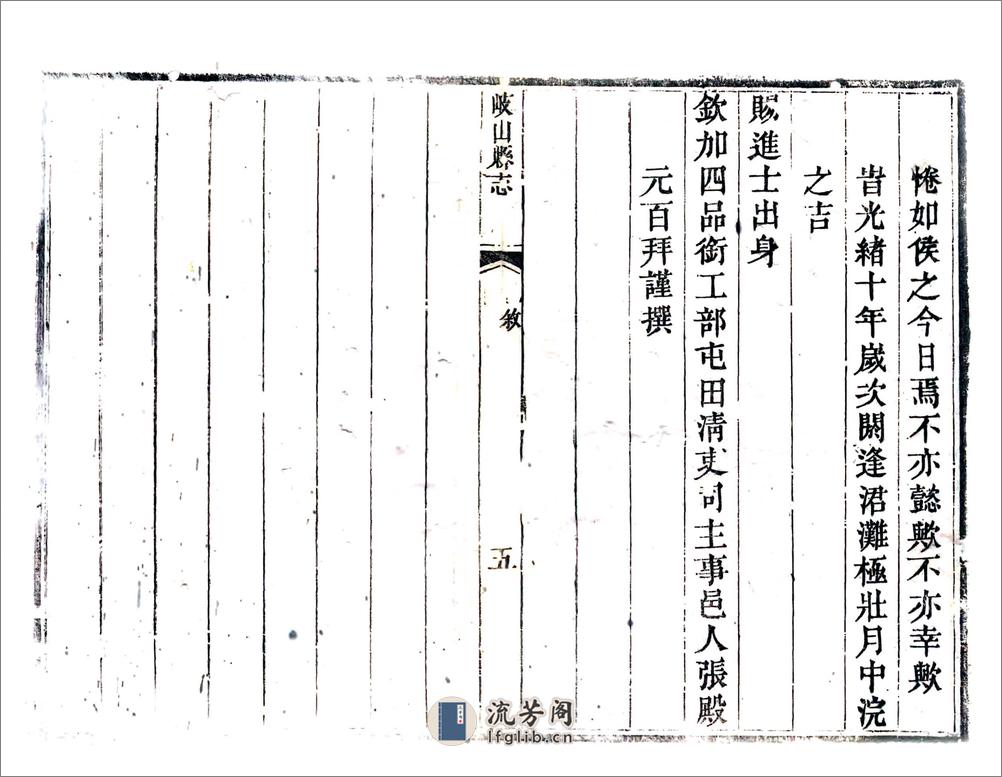 惓如侯之今日焉不亦懿歟不亦幸歟
旹光緒十年歲次閼逢涒灘極壯月中浣
之吉
賜進士出身
欽加四品銜工部屯田清吏司主事邑人張殿
元百拜謹撰
岐山縣志
敘
五
流芳阁
lfglib.cn